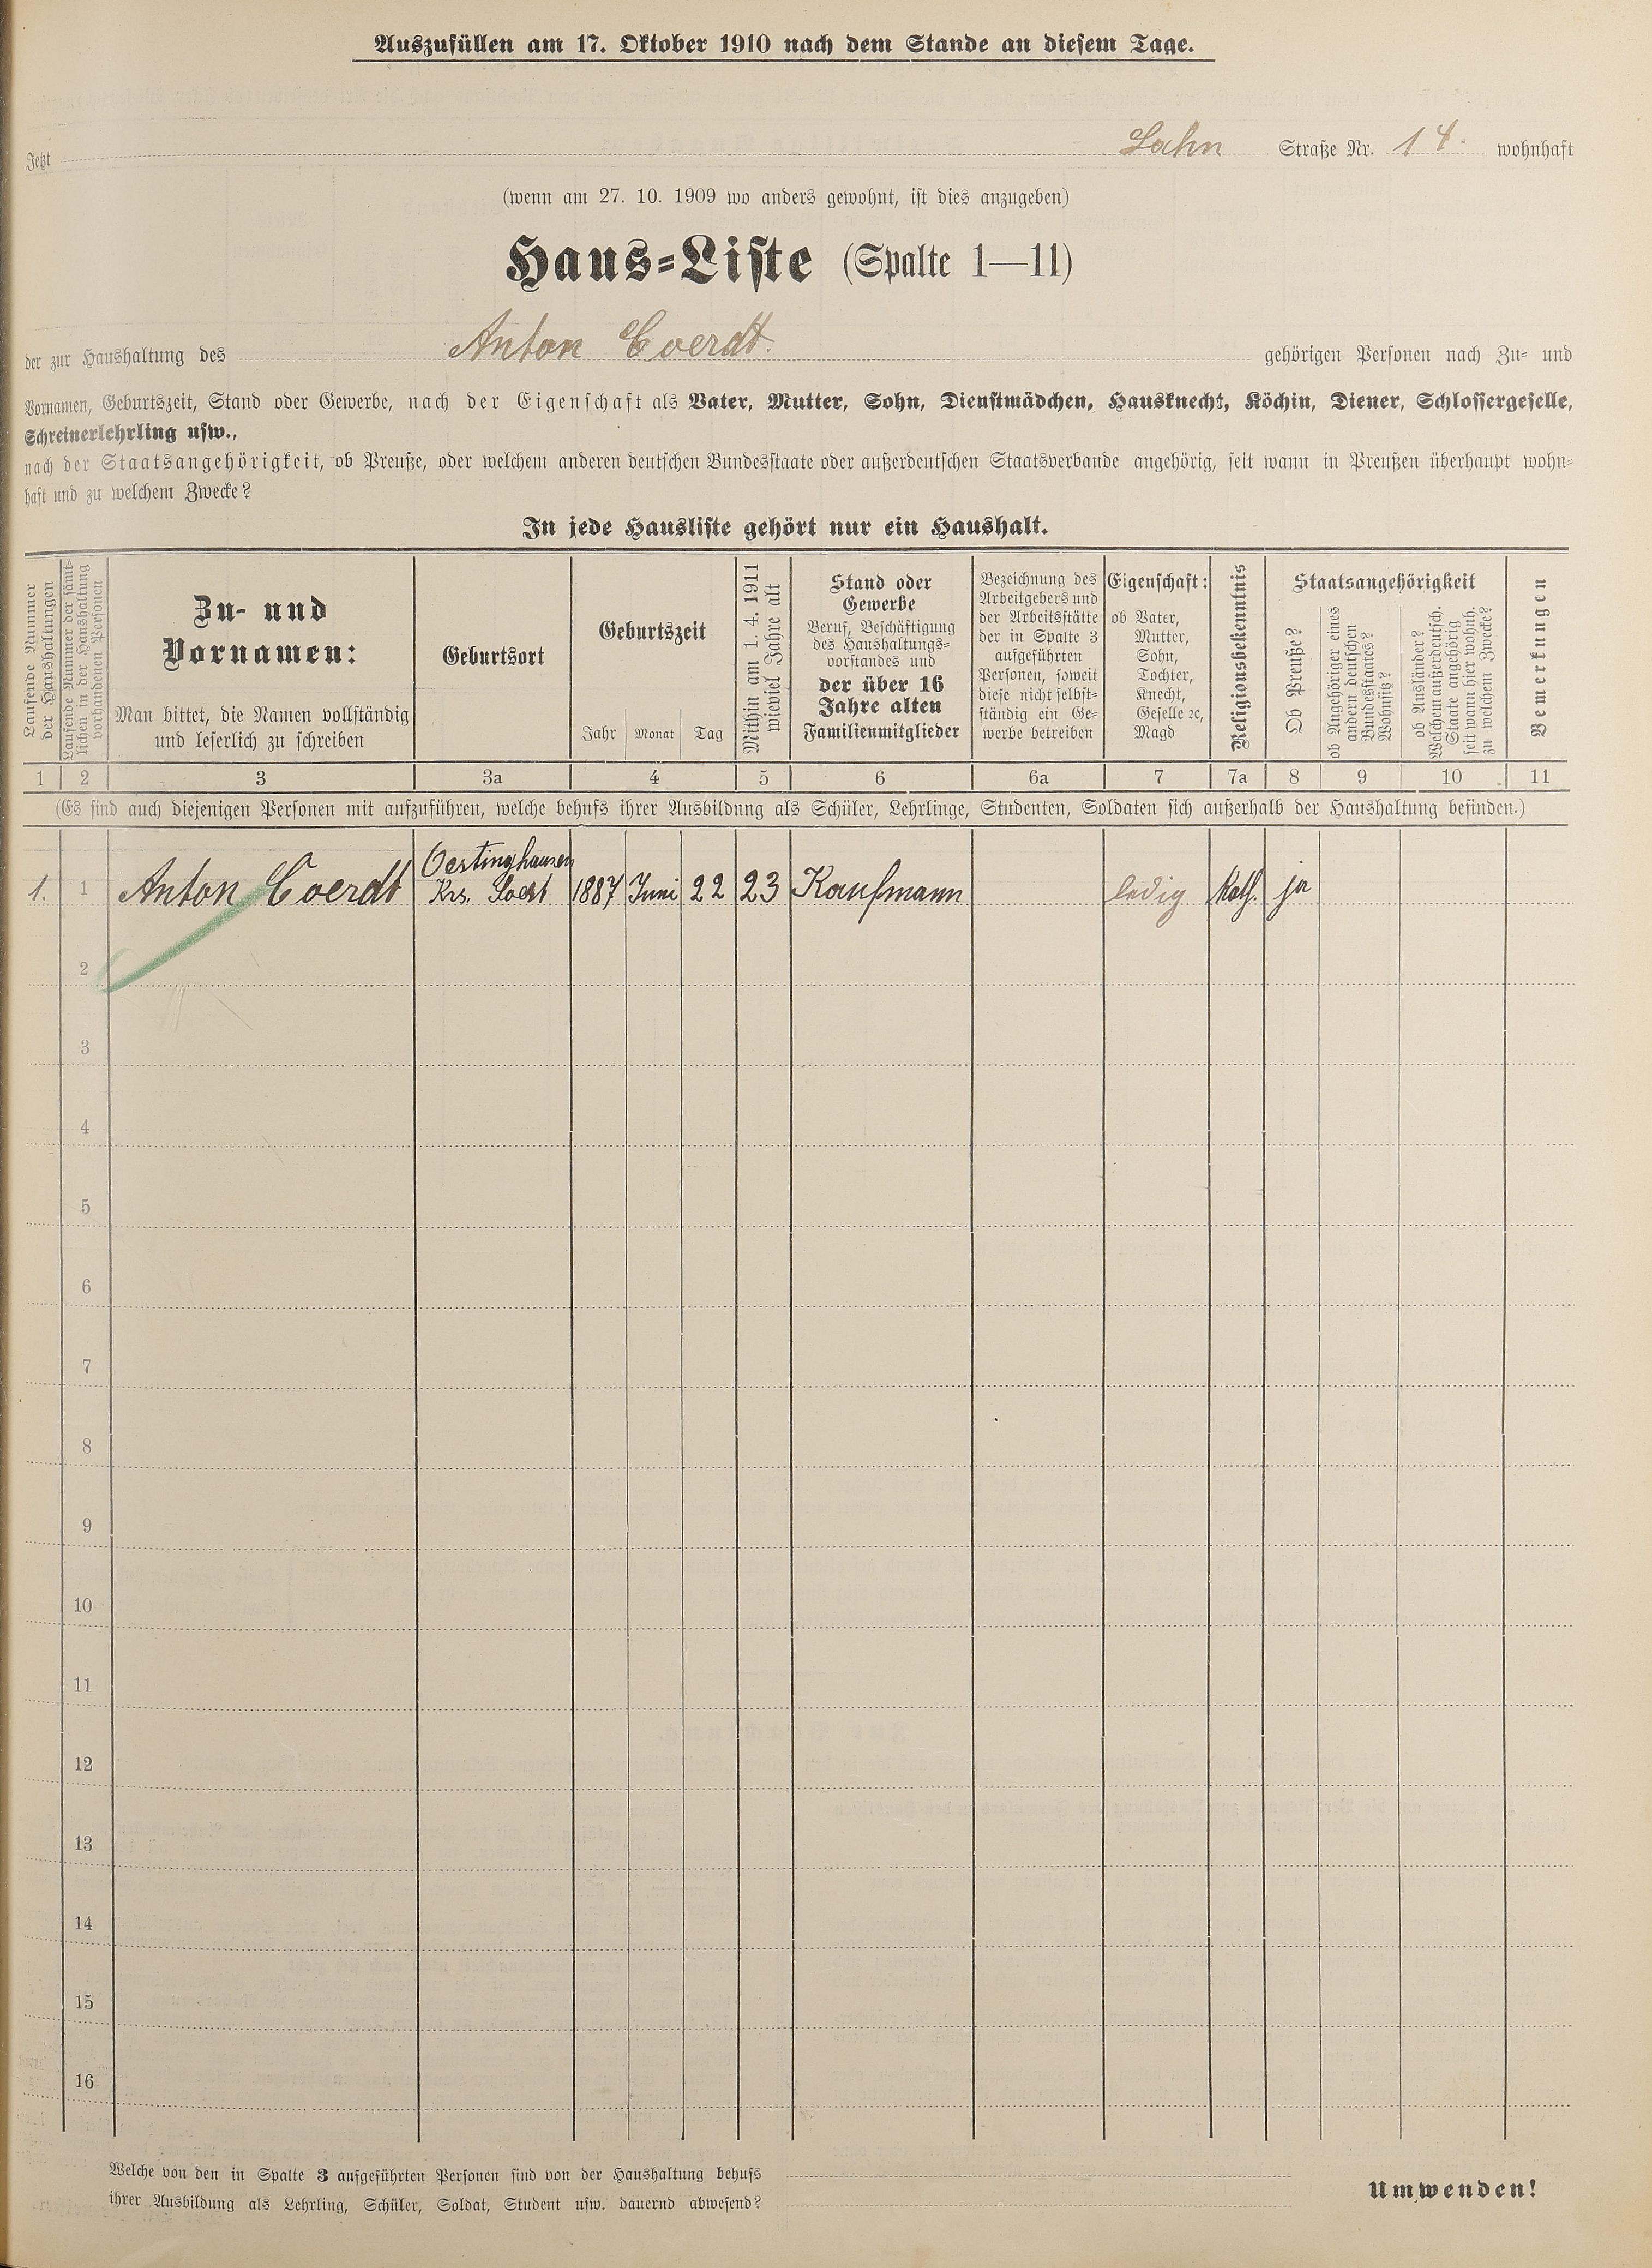 Auszufüllen am 17. Oktober 1910 nach dem Stande an diesem Tage.
Jetzt Lahn Straße Nr. 14. wohnhaft
(wenn am 27. 10. 1909 wo anders gewohnt, ist dies anzugeben)
Haus=Liste (Spalte 1—11)
der zur Haushaltung des Anton Coerdt. gehörigen Personen nach Zu= und
Vornamen, Geburtszeit, Stand oder Gewerbe, nach der Eigenschaft als Vater, Mutter, Sohn, Dienstmädchen, Hausknecht, Köchin, Diener, Schlossergeselle,
Schreinerlehrling usw.,
nach der Staatsangehörigkeit, ob Preuße, oder welchem anderen deutschen Bundesstaate oder außerdeutschen Staatsverbande angehörig, seit wann in Preußen überhaupt wohn=
haft und zu welchem Zwecke?
In jede Hausliste gehört nur ein Haushalt.
Laufende Nummer
der Haushaltungen
Laufende Nummer der sämt=
lichen in der Haushaltung
vorhandenen Personen
Zu- und
Vornamen:
Man bittet, die Namen vollständig
und leserlich zu schreiben
Geburtsort
Geburtszeit
Jahr Monat Tag
Mithin am 1. 4. 1911
wieviel Jahre alt
Stand oder
Gewerbe
Beruf, Beschäftigung
des Haushaltungs=
vorstandes und
der über 16
Jahre alten
Familienmitglieder
Bezeichnung des
Arbeitgebers und
der Arbeitsstätte
der in Spalte 3
aufgeführten
Personen, soweit
diese nicht selbst=
ständig ein Ge=
werbe betreiben
Eigenschaft:
ob Vater,
Mutter,
Sohn,
Tochter,
Knecht,
Geselle ꝛc,
Magd
Religionsbekenntnis
Staatsangehörigkeit
Ob Preuße?
ob Angehöriger eines
andern deutschen
Bundesstaates?
Wohnsitz?
ob Ausländer?
Welchem außerdeutsch.
Staate angehörig
seit wann hier wohnh.
zu welchem Zwecke?
Bemerkungen
1 2 3 3a 4 5 6 6a 7 7a 8 9 10 11
(Es sind auch diejenigen Personen mit aufzuführen, welche behufs ihrer Ausbildung als Schüler, Lehrlinge, Studenten, Soldaten sich außerhalb der Haushaltung befinden.)
Oestinghausen
1. 1 Anton Coerdt Krs. Soest 1887 Juni 22 23 Kaufmann ledig Kath. ja
2
3
4
5
6
7
8
9
10
11
12
13
14
15
16
Welche von den in Spalte 3 aufgeführten Personen sind von der Haushaltung behufs
ihrer Ausbildung als Lehrling, Schüler, Soldat, Student usw. dauernd abwesend?
Umwenden!